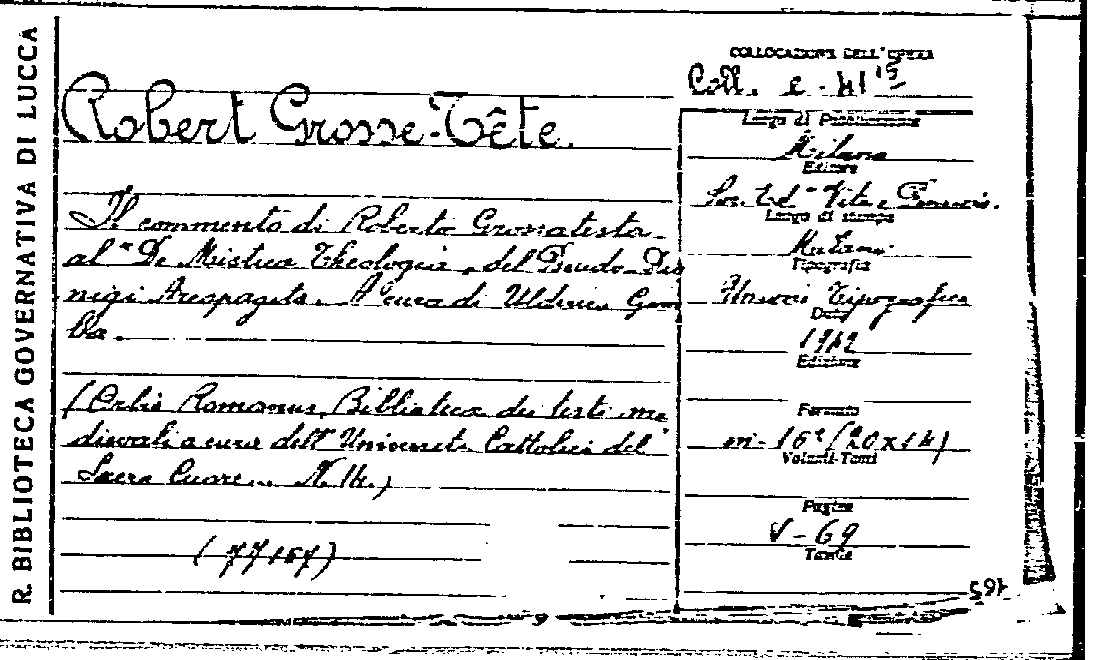 R. BIBLIOTECA GOVERNATIVA DI LUCCA
Robert Grosse-Tête.
Il commento di Roberto Grossatesta
al "De Mistica Theologia" del Pseudo-Dio
nigi Areopagita. A cura di Ulderico Gam
ba.
(Orbis Romanus, Biblioteca dei testi me
dievali a cura dell' Università Cattolica del
Sacro Cuore... N. 14.)
(77157)
COLLOCAZIONE DELL'OPERA
Coll. e - 41
Luogo di Pubblicazione
Milano
Editore
Soc. Ed. "Vita e Pensiero".
Luogo di stampa
Milano
Tipografia
Unione Tipografica
Data
1942
Edizione
Formato
in- 16° (20x14)
Volumi-Tomi
Pagine
V - 69
Tavole
165